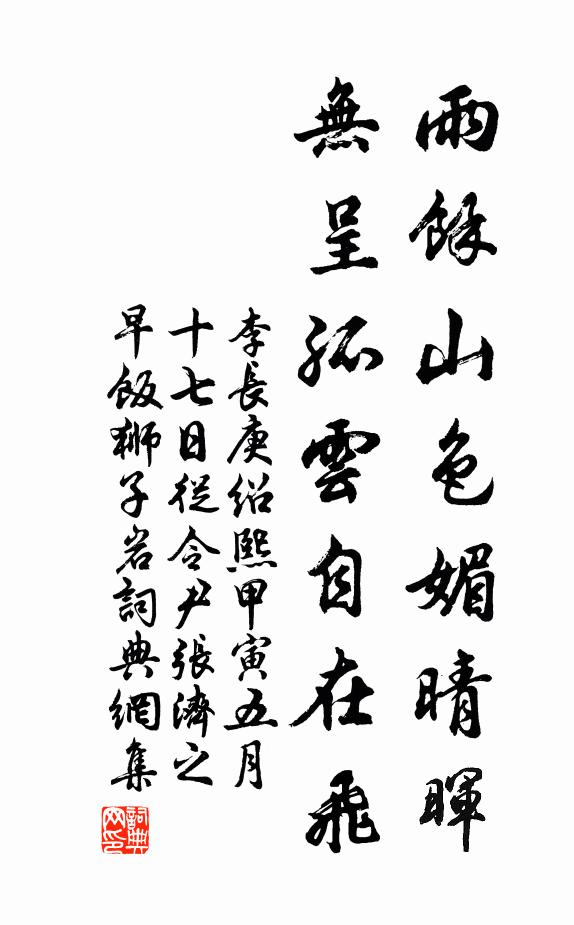 雨餘山色媚晴暉
無呈孤雲自在飛
李長庚紹熙甲寅五月
十七日從令尹張濟之
早飯獅子岩詞典網集
詞典
网印